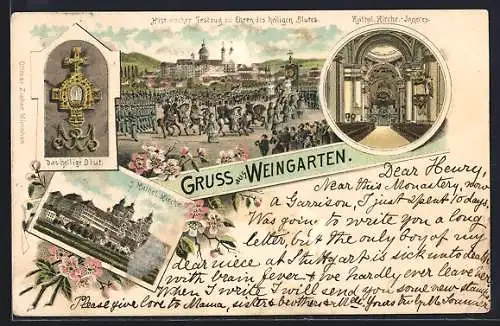 Historischer Festzug zu Ehren des heiligen Blutes.
Kathol. Kirche.-Inneres
Ottmar Zieher München
Das heilige Blut.
Kathol. Kirche
GRUSS aus WEINGARTEN.
Dear Henry,
Near this Monastery, now
a Garrison, I just spent 10 days.
Was going to write you a long
letter, but the only boy of my
dear niece at Stuttgart is sick unto death
with brain fever & we hardly ever leave her
When I write I will send you some new stamps
Please give love to Mama, sister & brothers & Yours